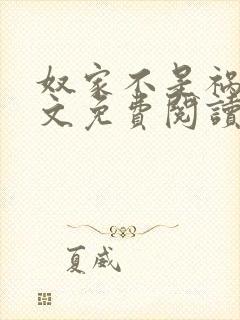 奴家不是祸
文免費閱讀
夏威